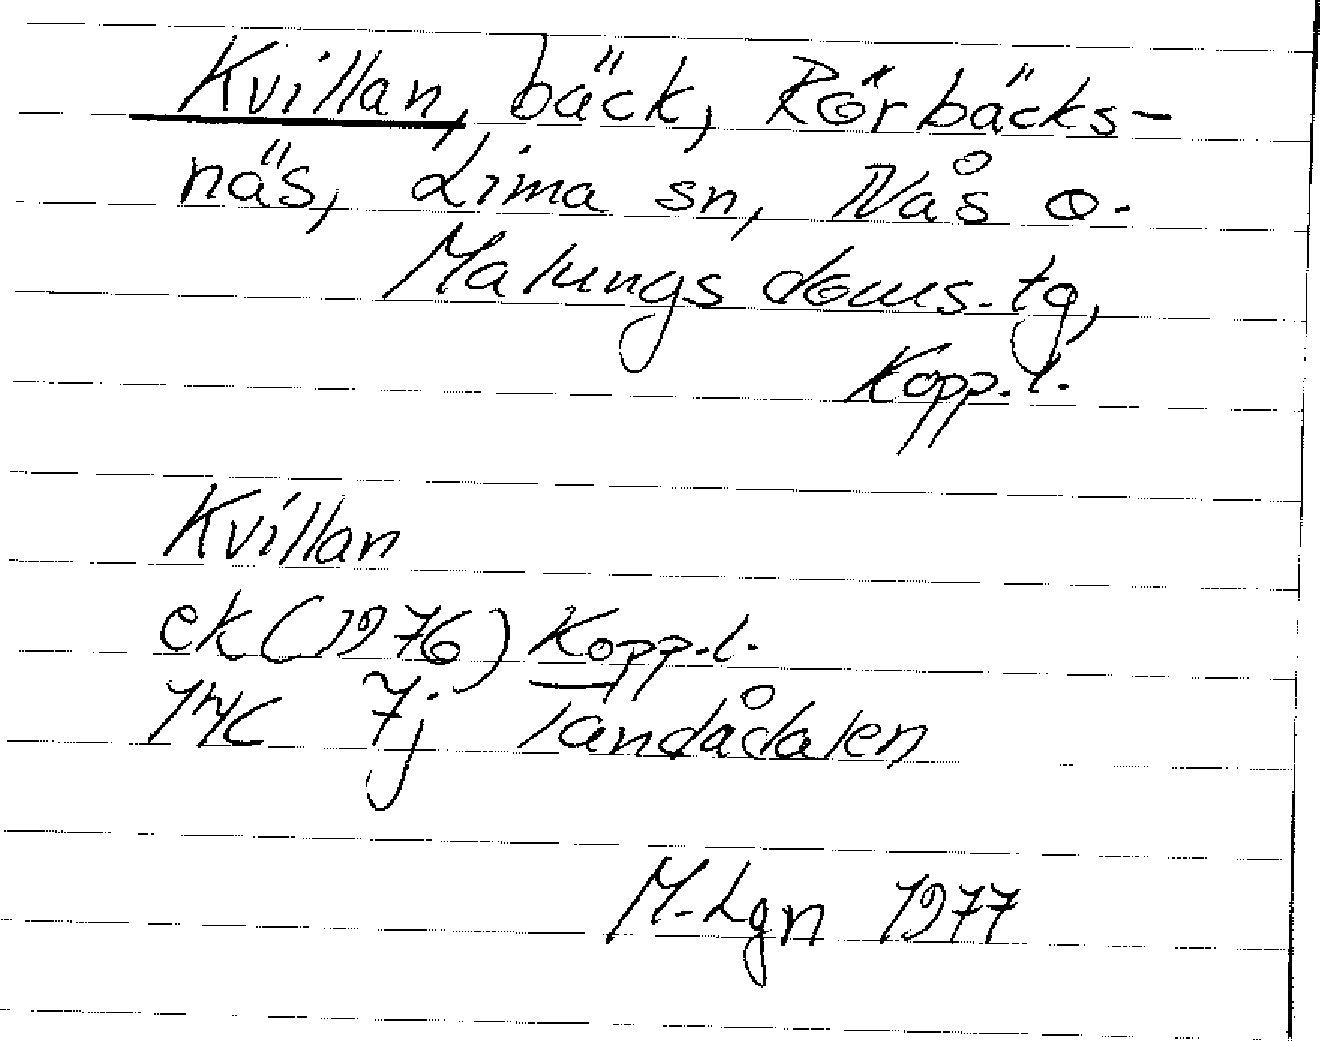 Kvillan, bäck, Rörbäcks-
näs, Lima sn, Nås o.
Malungs doms.tg,
Kopp.l.
Kvillan
ek (1976) Kopp.l.
14C 7j Tandådalen
M-Lgn 1977